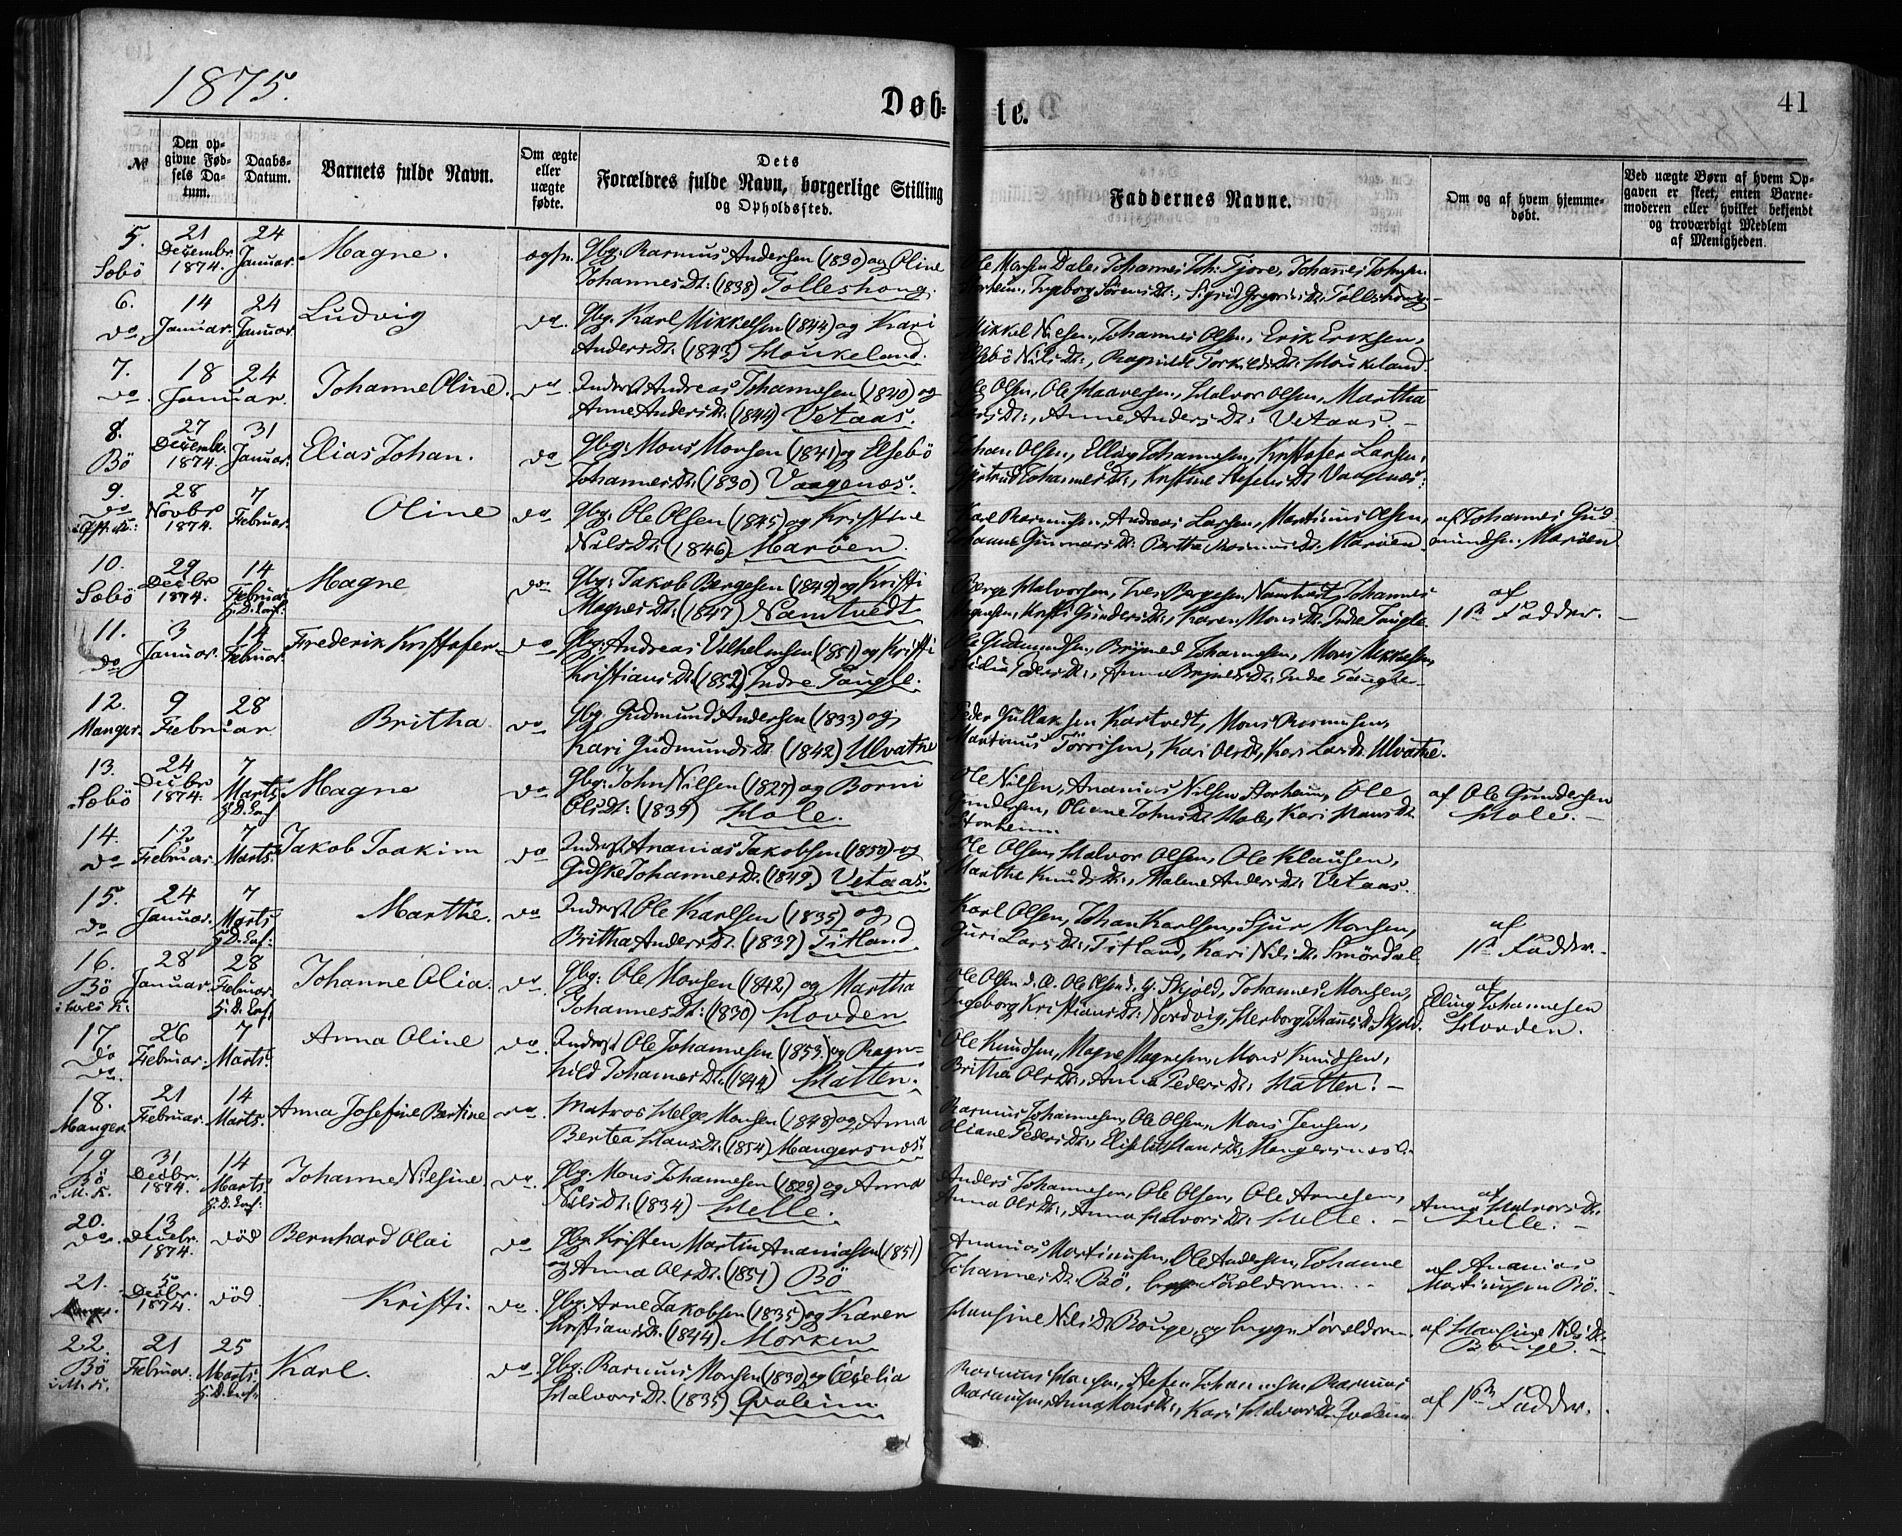 1875.
Døb-
te.
41
№
Den op-
givne Fød-
sels Da-
tum.
Daabs-
Datum.
Barnets fulde Navn.
Om ægte
eller
uægte
fødte.
Dets
Forældres fulde Navn, borgerlige Stilling
og Opholdssted.
Faddernes Navne.
Om og af hvem hjemme-
døbt.
Ved uægte Børn af hvem Op-
gaven er skeet, enten Barne-
moderen eller hvilket bekjendt
og troværdigt Medlem
af Menigheden.
5. 21 24
Sæbö Decembr. Januar. Magne. ægte. Gbg. Rasmus Andersen (1830) og Oline
1874. Johannes Dt: (1838) Tolleshoug.
Ole Monsen Dale, Johannes Joh: Fjore, Johannes
Ingeborg Sörens Dt:, Sigrid Gregorius Dt. Tolleshoug.
6. 14 24
do Januar. Januar. Ludvig do. Gbg. Karl Mikkelsen (1844) og Kari
Anders Dt: (1843) Houkeland.
Mikkel Nilsen, Johannes Olsen, Erik Eriksen,
Nils Dt:, Ragnilde Torkilds Dt: Houkeland.
7. 18 24
do. Januar. Johanne Oline. do. Inderst Andreas Johannesen (1840) og
Anne Anders Dt: (1844) Vetaas.
Ole Olsen, Ole Haavesen, Halvor Olsen, Martha
Lars Dt:, Anne Anders Dt: Vetaas. -
8. 27 31
Bö Decembr. Januar. Elias Johan. do Gbg: Mons Monsen (1841) og Elsebö
1874. Johannes Dt. (1830) Vaagenæs.
Johan Olsen, Elling Johannesen, Kristofer Larsen,
Gjertrud Johannes Dt:, Kristine Stefens Dt. Vaagenæs.
9. 28 7
do Novbr Februar. Oline do Gbg. Ole Olsen (1845) og Kristine
1874. Nils Dt. (1846) Maröen.
Karl Rasmusen, Andreas Larsen, Martinus Olsen,
Johanne Gunnars Dt. Bertha Rasmus Dt. Maröen.
af Johannes Gud-
mundsen Maröen
10. 29 14
Sæbö Decbr Februar Magne do. Gbg: Jakob Bergesen (1849) og Kristi
1874. Magnes Dt. (1847) Namtvedt
Berge Halvorsen, Iver Bergesen Namtvedt, Johannes
Kristi Gunders Dt., Karen Mons Dt. Indre Tangle.
af
1ste Fadder. -
11. 3 14
do Januar. Februar. Frederik Kristofer do Gbg: Andreas Vilhelmsen (1851) og Kristi
Kristians Dt. (1852) Indre Tangle.
Ole Gudmundsen, Brijned Johannesen, Mons Mikkelsen,
Peders Dt:, Anna Brijneds Dt. Indre Tangle.
12. 9 28
Manger. Februar Britha do Gbg. Gudmund Andersen (1833) og
Kari Gudmunds Dt. (1842) Ulvatne
Peder Gullaksen Kartvedt, Mons Rasmusen,
Martinus Törrisen, Kari Ols Dt., Kari Lars Dt. Ulvatne.
13. 24 7
Sæbö Decbr Marts Magne do Gbg. John Nilsen (1827) og Borni
1874. Ols Dt: (1835) Hole.
Ole Nilsen, Ananias Nilsen Storheim, Ole
Gundersen, Oliane Johns Dt. Hole, Kari Hans Dt.
Storheim.
af Ole Gundersen
Hole. -
14. 12 7
do Februar. Marts. Jakob Joakim do Inderst Ananias Jakobsen (1850) og
Gudske Johannes Dt. (1849) Vetaas.
Ole Olsen, Halvor Olsen, Ole Klausen,
Marthe Knuds Dt:, Malene Anders Dt: Vetaas.
15. 24 7
do Januar. Marts Marthe. do Inderst Ole Karlsen (1835) og
Britha Anders Dt. (1837) Titland
Karl Olsen, Johan Karlsen, Sjur Monsen,
Guri Lars Dt:, Titland, Kari Nils Dt. Smördal.
af
1ste Fadder. -
16. 28 28
Bö Januar. Februar. Johanne Olia. do. Gbg: Ole Monsen (1842) og Martha
Johannes Dt: (1830) Hovden
Ole Olsen d. Æ. Ole Olsen d. y. Skjold, Johannes Monsen,
Ingeborg Kristians Dt: Nordvig, Herborg Johannes Dt. Skjold.
af
Elling Johannesen
Hovden.
17. 26 7
do Februar. Marts. Anna Oline do. Inderst Ole Johannesen (1853) og Ragn-
hild Johannes Dt. (1844) Hatten.
Ole Knudsen, Magne Magnesen, Mons Knudsen,
Britha Ols Dt:, Anna Peders Dt: Hatten. -
18. 21 14
Manger Februar. Marts. Anna Josefine Bertine do. Matros Helge Monsen (1848) og Anna
Bertea Hans Dt. (1854) Mangersnæs.
Rasmus Johannesen, Ole Olsen, Mons Jensen,
Oliane Peders Dt:, Elisabet Hans Dt: Mangersnæs.
19. 31 14
Bö Decbr. Marts. Johanne Nilsine do. Gbg. Mons Johannesen (1823) og Anna
1874. Nils Dt: (1834) Helle.
Anders Johannesen, Ole Olsen, Ole Arnesen,
Anna Ols Dt:, Anna Halvors Dt. Helle. -
af
Anna Halvors Dt.
Helle. -
20. 13
do. Decebr. död Bernhard Olai do Gbg. Kristen Martin Ananiassen (1851)
1874. og Anna Ols Dt. (1851) Bö
Ananias Martinusen, Ole Andersen, Johanne
Johannes Dt. Bö, begge Foreldrene. -
af Ananias
Martinusen Bö. -
21. 5
Decbr. död. Kristi. do. Gbg. Arne Jakobsen (1835) og Karen
1874. Kristians Dt. (1844) Morken
Hansine Nils Dt. Bouge, og begge Foreldrene.
af Hansine Nils Dt.
Bouge. -
22. 21 25
Bö Februar. Marts. Karl. do. Gbg. Rasmus Monsen (1830) og Cecelia
i M. K. Halvors Dt. (1835) Qvaleim
Rasmus Hansen, Stefen Johannesen, Rasmus
Rasmusen, Anna Mons Dt., Kari Halvors Dt. Qvaleim
af 1ste Fadder.